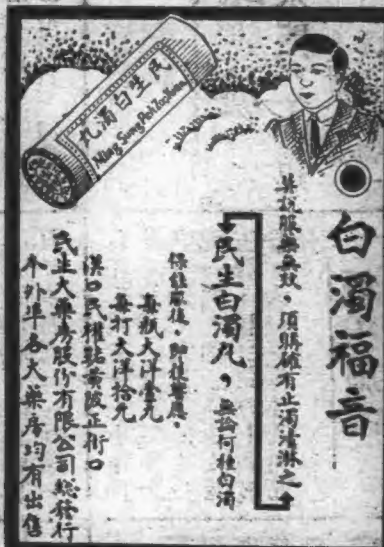 民生白濁丸
Ming Sung Pei
白濁福音
莫說服無效，須購確有止濁清淋之
民生白濁丸，無論何種白濁
保能服後，即復
每瓶大洋壹元
每打大洋拾元
漢口民權路黃陂正街口
民生大藥房股份有限公司總發行
本外埠各大藥房均有出售